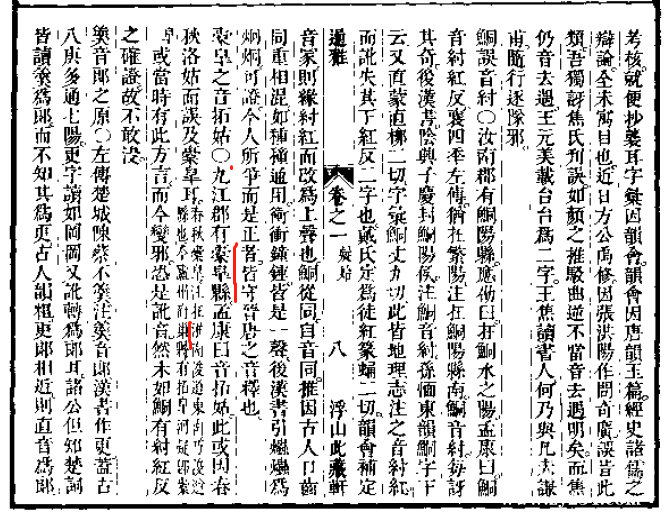 考核就便抄謄耳字彙因韻會韻會因唐韻玉篇經史諸儒之
辯論全未寓目也近日方公馮修因張洪陽作問奇廣誤皆此
類吾獨訝焦氏刋誤如顏之推駁曲逆不當音去遇明矣而焦
仍音去遇王元美載台台爲二字王焦讀書人何乃與凡夫謙
甫隨行逐隊邪
鮦誤音紂○汝南郡有鮦陽縣應劭曰在鮦水之陽孟康曰鮦
音紂紅反襄四年左傳猶在繁陽注在鮦陽縣南鮦音紂每訝
其奇後漢書陰興子慶封鮦陽侯注鮦音紂孫愐東韻鮦字下
云又直蒙直柳二切字彙鮦丈九切此皆地理志注之音紂紅
而訛失其下紅反二字也戴氏定爲徒紅篆蝠二切韻會補定
通雅 卷之一 疑始 八 浮山此藏軒
音冢則緣紂紅而改爲上聲也鮦從同自音同推因古人口齒
同重相混如種穜通用衝衕鐘鍾皆是一聲後漢書引爞爞爲
烔烔可證今人所爭而是正者皆守晉唐之音釋也
橐皋之音拓姑○九江郡有橐皋縣孟康曰音拓姑此或因春
秋洛姑而誤及橐皋耳春秋橐皋注在淮南逡遒東南乃浚遒
縣也今廬州府巢縣有拓皋河疑卽橐
皋或當時有此方言而今變邪恐是訛音然未如鮦有紂紅反
之確證故不敢沒
羹音郎之原○左傳楚城陳蔡不羹注羹音郎漢書作更蓋古
八庚多通七陽更字讀如岡岡又訛轉爲郎耳諸公但知楚詞
皆讀羹爲郎而不知其爲更古人韻粗更郎相近則直音爲郎